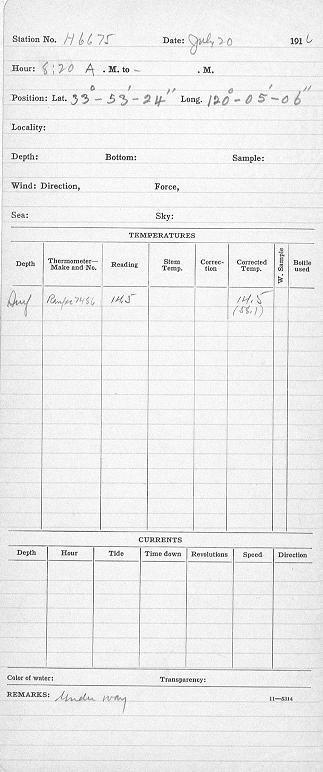 Station No. H6675 Date: July 20 1916
Hour: 8:20 A . M. to – . M.
Position: Lat. 33° – 53' – 24" Long. 120° – 05' – 06"
Locality:
Depth: Bottom: Sample:
Wind: Direction, Force,
Sea: Sky:
TEMPERATURES
Depth Thermometer— Make and No. Reading Stem Temp. Correc- tion Corrected Temp. W. Sample Bottle used
Surf 14.5 14.5
(58.1)
CURRENTS
Depth Hour Tide Time down Revolutions Speed Direction
Color of water: Transparency:
REMARKS: Under way 11—5314